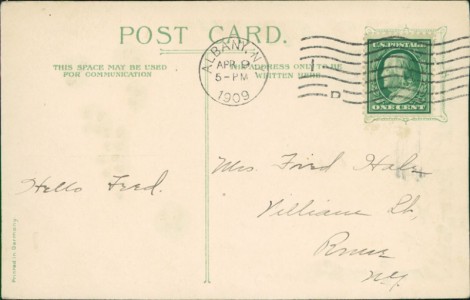 POST CARD.
THIS SPACE MAY BE USED
FOR COMMUNICATION
THE ADDRESS ONLY TO BE
WRITTEN HERE
ALBANY, N.Y.
APR 9
5-PM
1909
D
U.S. POSTAGE
ONE CENT
Hello Fred.
Mrs. Fred Hale
William St,
Rome
N.Y.
Printed in Germany